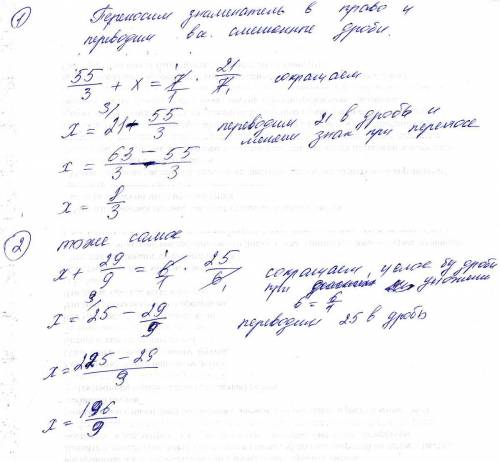 ① Переносим знаменатель в право и
переводим в смешенные дроби.
55/3 + x = 7/1 · 21/7 сокращаем
x = 21 - 55/3 переводим 21 в дробь и
меняем знак при переносе
x = 63 - 55/3
x = 8/3
② тоже самое
x + 29/9 = 6/1 · 25/6 сокращаем, целое бу дроби
при умножении
6 = 6/1
x = 25 - 29/9 переводим 25 в дробь
x = 225 - 29/9
x = 196/9